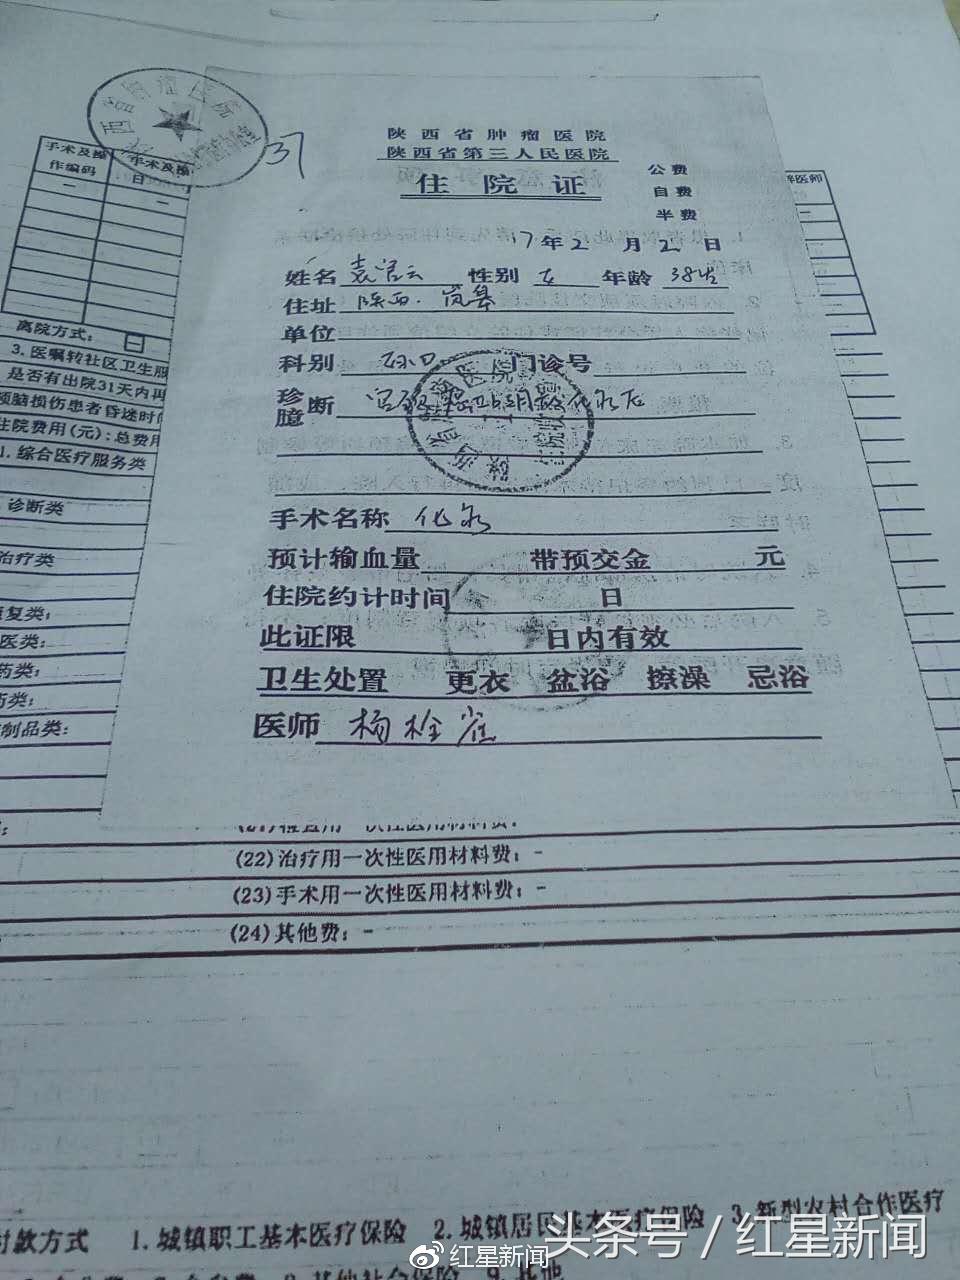 陕西省肿瘤医院
陕西省第三人民医院
住院证
公费
自费
半费
17年2月2日
姓名 性别 女 年龄 38岁
住址 陕西.岚皋
单位
科别 门诊号
诊断
手术名称 化疗
预计输血量 带预交金 元
住院约计时间 日
此证限 日内有效
卫生处置 更衣 盆浴 擦澡 忌浴
医师
31
手术及操作编码
手术及操
日
医师
离院方式: 一
3.医嘱转社区卫生服
是否有出院31天内再
颅脑损伤患者昏迷时间
住院费用(元):总费用
1.综合医疗服务类
诊断类
治疗类
康复类:
医类:
药类:
药类:
制品类:
(22)治疗用一次性医用材料费:-
(23)手术用一次性医用材料费:-
(24)其他费:-
付款方式 1.城镇职工基本医疗保险 2.城镇居民基本医疗保险 3.新型农村合作医疗
其他社会保险 9.其他
红星新闻
头条号/红星新闻